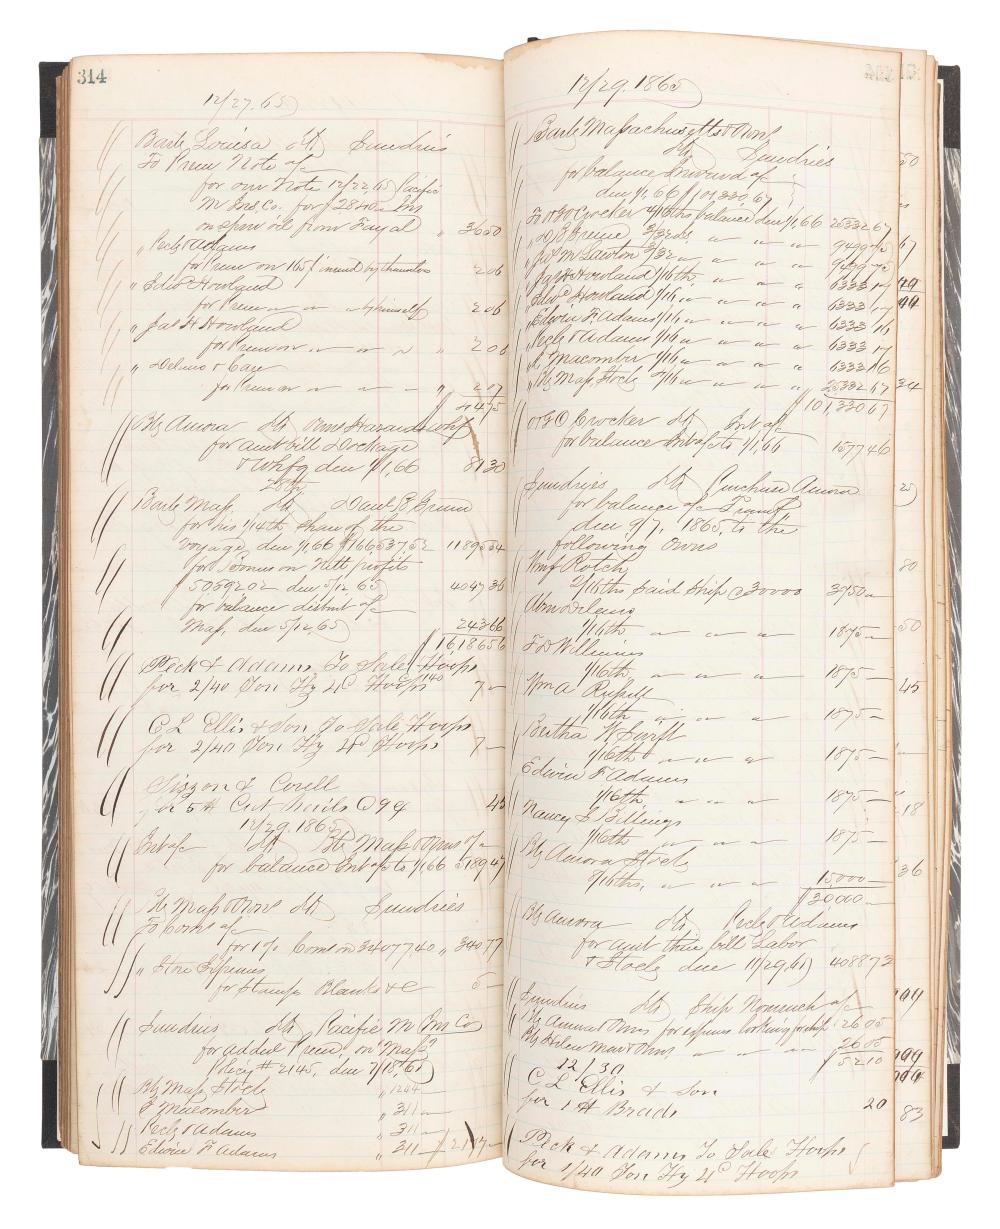 314
12/27.65
Bark Louisa Dr Sundries
To Prem Note a/c
for our Note 12/22.65 Pacific
M Ins. Co. for $2840 Ins
on sperm oil from Fayal " 3650
" Peck & Adams
for Prem on 165/ insured by themselves 206
" Edwd Howland
for Prem " " " himself 206
" Jas H Howland
for Prem " " " " 206
" Delano &
for Prem " " " " 207
4475
Brk Aurora Dr Wms Hazard whf
for amt bill Dockage
& Whfg due 1/1,66 8130
28th
Bark Mass. Dr Danl B Greene
for his 1/14th share of the
voyage, due 1/1,66 $166537,52 1189554
for Bonus on Nett profits
50592.02 due 5/12 65 404736
for balance distrbt a/c
Mass, due 5/12,65 24366
1618656
Peck & Adams, To Sale Hoops
for 2/40 Ton Hy 4C Hoops 140 7 —
C L Ellis & Son To Sale Hoops
for 2/40 Ton Hy 4C Hoops 7 —
Sisson &
for 5 # Cut Nails @ 9¢ 45
12/29.1865
Int a/c Dr Bk Mass & Owns
for balance Int a/c to 1/1,66 518947
Bk Mass & Owns Dr Sundries
To Coms a/c
for 1% Coms on 340777,40 " 340777
" Store Expenses
for Stamps Blanks &c 5 —
Sundries Dr Pacific M Ins Co
for added Prem on "Mass"
Policy # 2145, due 7/18,65
Bk Mass Stock " 1244 —
E Macomber " 311 —
Peck & Adams " 311 —
Edwin F Adams " 311 —
12/29.1865
Bark Massachusetts & Owns
Dr Sundries
for balance Inward a/c
due 1/1,66 $101330,67
To O & G O Crocker 4/16ths balance due 1/1,66 2533267
" D B Greene 3/32ds " " " 949975
" Jos M Lawton 3/32 " " " " 949975
" Jas H Howland 1/16th " " " 633317
" Edwd Howland 1/16 " " " " 633317
" Edwin F. Adams 1/16 " " " " 633316
" Peck & Adams 1/16 " " " " 633317
" E Macomber 1/16 " " " " 633316
" Bk Mass. Stock 4/16 " " " " 2533267
10133067
O & G O Crocker Dr Int a/c
for balance Int a/c to 1/1,66 157746
Sundries Dr Purchase Aurora
for balance a/c Transf
due 9/7, 1865, to the
following Owns
Wm J Rotch
2/16ths said Ship @ 30000 3750 —
Abm Delano
1/16th " " " 1875 —
F D Williams
1/16th " " " 1875 —
Wm A Russell
1/16th " " " 1875 —
Bertha W Swift
1/16th " " " 1875 —
Edwin F Adams
1/16th " " " 1875 —
Nancy S Billings
1/16th " " " 1875 —
Bk Aurora Stock
8/16ths, " " " 15000 —
30000 —
Bk Aurora Dr Peck & Adams
for amt their bill Labor
& Stock due 11/29,65 408873
Sundries Dr Ship a/c
Bk Aurora & Owns for expense looking for ship 2605
Bk & Owns " " " 2605
5210
12/30
C L Ellis & Son
for 1 # Brads 20
Peck & Adams To Sale Hoops
for 1/40 Ton Hy 4C Hoops